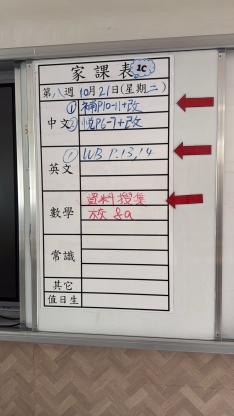 家課表 1C
第八週 10月21日(星期二)
中文 ① 補P10-11+改
② 悅P6-7+改
英文 ① WB P.13,14
數學 資料搜集
常識
其它
值日生